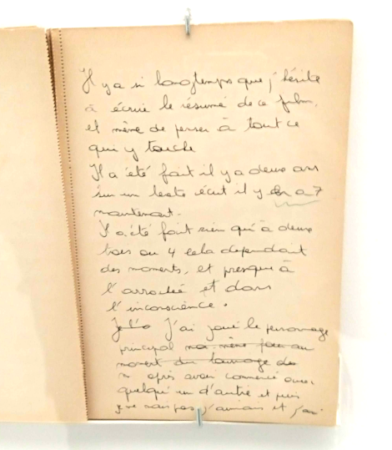 Il y a si longtemps que j'hésite
à écrire le résumé de ce film,
et même de penser à tout ce
qui y touche
Il a été fait il y a deux ans
sur un texte écrit il y en a 7
maintenant.
Il a été fait rien qu'à deux
trois ou 4 cela dépendant
des moments, et presque à
l'arraché et dans
l'inconscience.
J'ai joué le personnage
principal ma mère
moment du tournage
après avoir commencé avec
quelqu'un d'autre et puis
j'aimais et